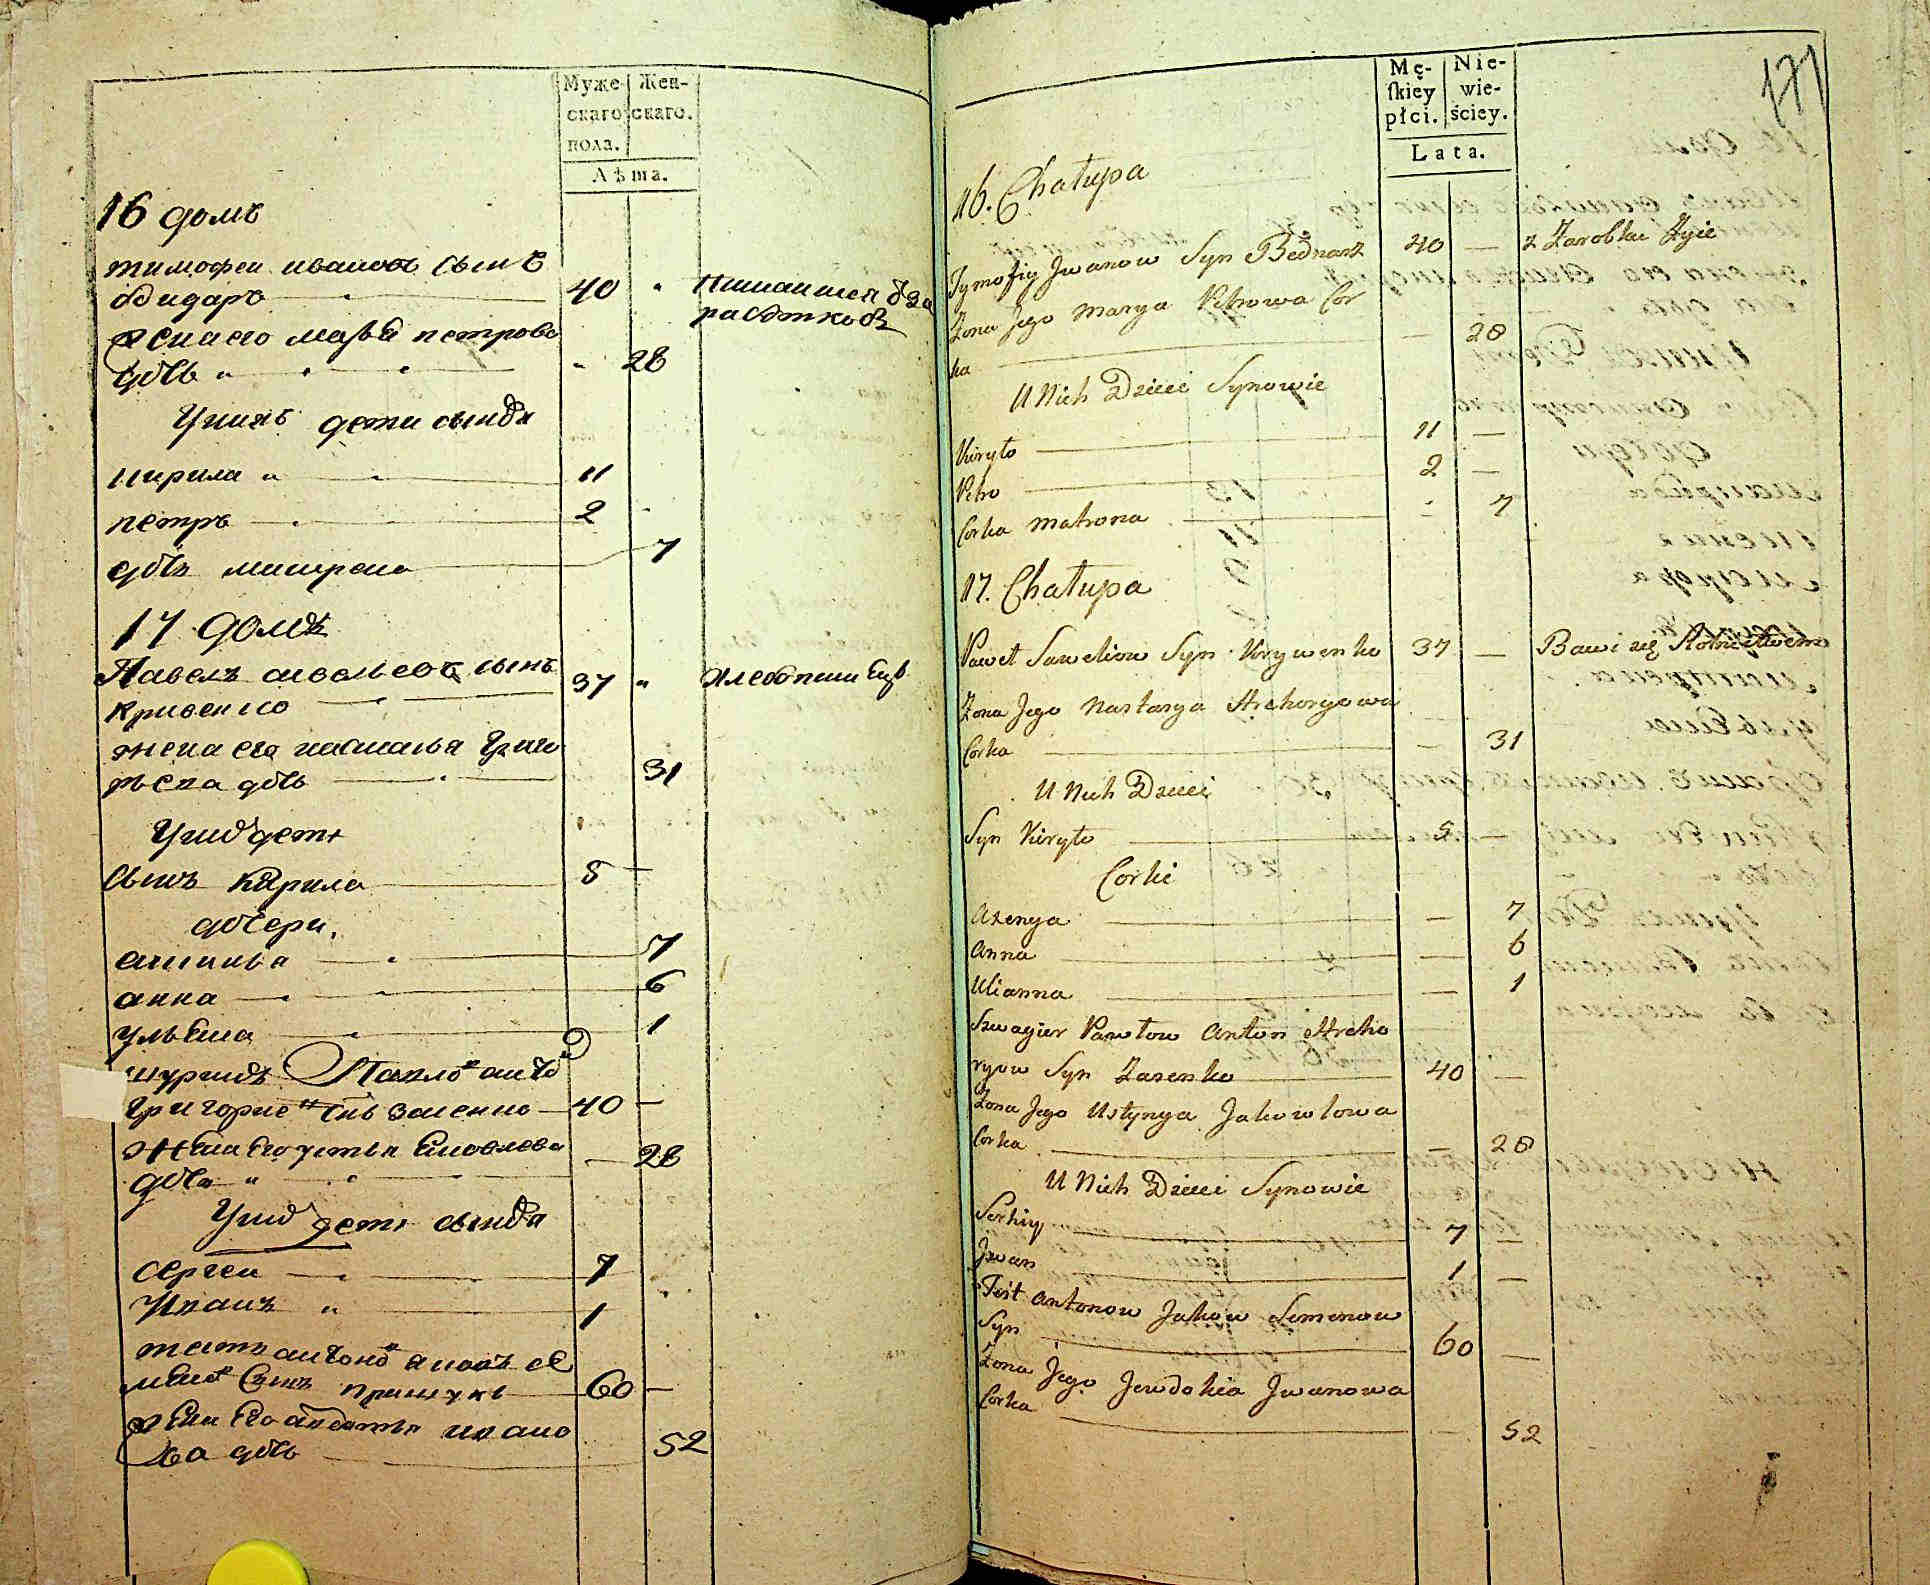 Муже- Жен-
скаго скаго.
пола.
Лѣта.
16 домъ
тимофеи ивановъ сынъ
бидаръ 40
жена его марья петрова
дочь 28
У нихъ дети сыновя
кирила 11
петръ 2
дочь матрена 7
17 домъ
Павелъ савельевъ сынъ
кривенко 37 хлебопашецъ
жена его настасья григо
рьева дочь 31
У них дети
сынъ кирила 5
дочери
аксинья 7
анна 6
ульяна 1
шуринъ Павлов антон
григориев снъ засенко 40
жена его устья яковлева
дочь 28
У них дети сыновя
сергеи 7
Иванъ 1
тесть антонов яковъ се
менов сынъ 60
жена его авдотья ивано
ва дочь 52
171
Mę- Nie-
skiey wie-
płci. ściey.
Lata.
16. Chałupa
Tymofiy Jwanow Syn Bednarz 40 — z Zarobku Żyie
Żona Jego Marya Petrowa Cor
ka — 28
U Nich Dzieci Synowie
Kiryło 11 —
Petro 2 —
Corka Matrona - 7
17. Chałupa
Paweł Saweliow Syn Krywenko 37 — Bawi się Rolnictwem
Żona Jego Nastasya Hrehorywa
Corka — 31
U Nich Dzieci
Syn Kiryło 5 —
Corki
Axenya — 7
Anna — 6
Ulianna — 1
Szwagier Pawłow Anton Hreho
ryow Syn Zasenko 40 —
Żona Jego Ustynya Jakowlowa
Corka — 28
U Nich Dzieci Synowie
Serhiy 7 —
Jwan 1 —
Teść Antonow Jakow Semenow
Syn 60 —
Żona Jego Jewdokia Jwanowa
Corka — 52